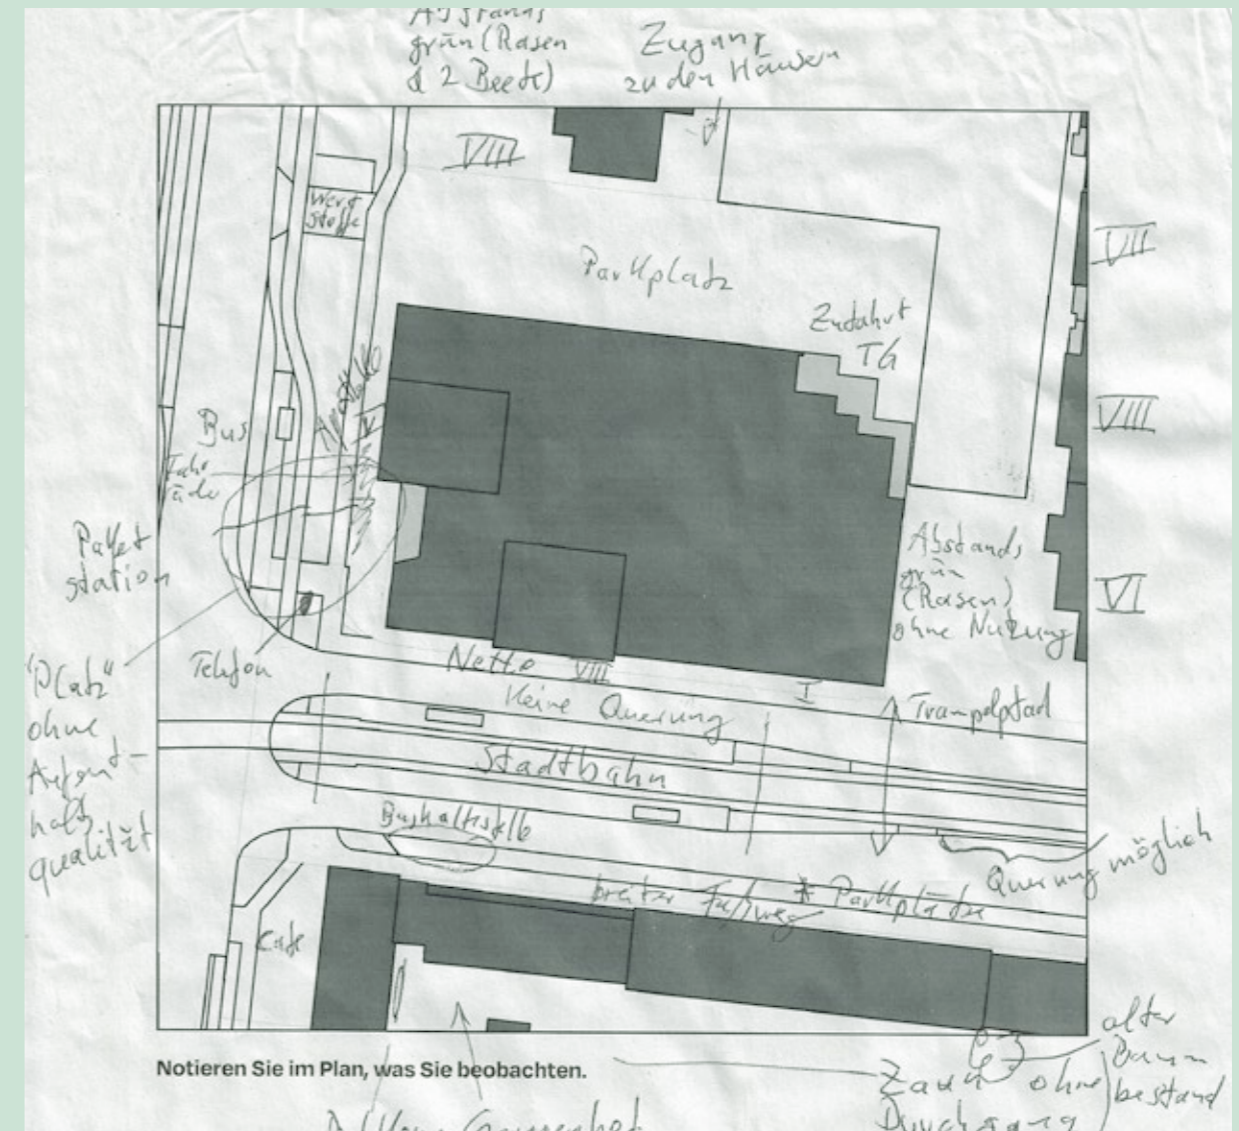 Abstands
grün (Rasen
& 2 Beete)
Zugang
zu den Häusern
VIII
Wert
stoffe
VII
Parkplatz
Zufahrt
TG
Apotheke
Bus
VIII
Fahr
räder
Paket
station
Abstands
grün
(Rasen)
ohne Nutzung
VI
Telefon
Netto VIII
I
"Platz"
ohne
Aufent-
halts
qualität
Keine Querung
Trampelpfad
Stadtbahn
Bushaltestelle
Querung möglich
breiter Fußweg * Parkplätze
Cafe
alter
Baum
bestand
Notieren Sie im Plan, was Sie beobachten.
Zaun ohne
Durchgang